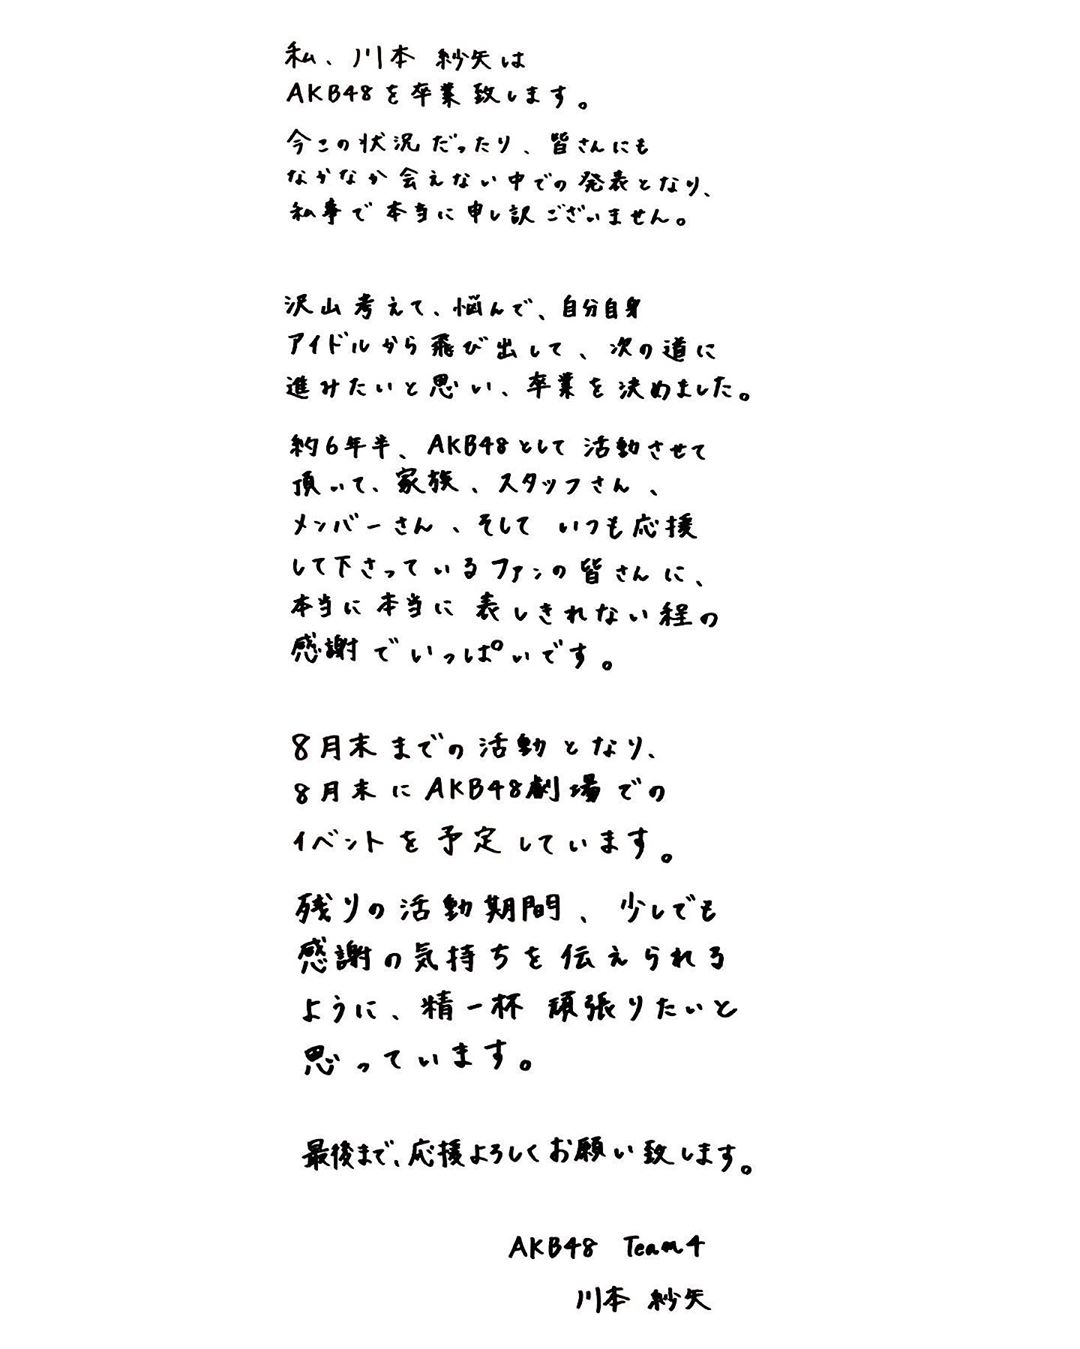 私、川本 紗矢は
AKB48を卒業致します。
今この状況だったり、皆さんにも
なかなか会えない中での発表となり、
私事で本当に申し訳ございません。
沢山考えて、悩んで、自分自身
アイドルから飛び出して、次の道に
進みたいと思い、卒業を決めました。
約6年半、AKB48として活動させて
頂いて、家族、スタッフさん、
メンバーさん、そして いつも応援
して下さっているファンの皆さんに、
本当に本当に表しきれない程の
感謝でいっぱいです。
8月末までの活動となり、
8月末にAKB48劇場での
イベントを予定しています。
残りの活動期間、少しでも
感謝の気持ちを伝えられる
ように、精一杯 頑張りたいと
思っています。
最後まで、応援よろしくお願い致します。
AKB48 Team4
川本 紗矢